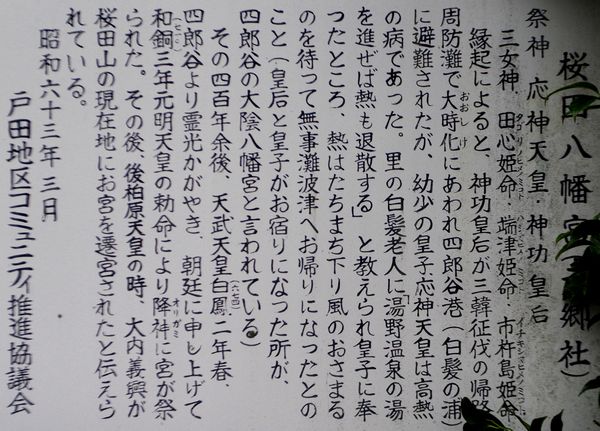 桜田八幡宮(郷社)
祭神 応神天皇・神功皇后
三女神、田心姫命・端津姫命・市杵島姫命
縁起によると、神功皇后が三韓征伐の帰路
周防灘で大時化にあわれ四郎谷港(白髪の浦)
に避難されたが、幼少の皇子応神天皇は高熱
の病であった。里の白髪老人に「湯野温泉の湯
を進ぜば熱も退散する」と教えられ皇子に奉
ったところ、熱はたちまち下り風のおさまる
のを待って無事難波津へお帰りになったとの
こと(皇后と皇子がお宿りになった所が、
四郎谷の大陰八幡宮と言われている)
その四百年余後、天武天皇白鳳二年春、
四郎谷より霊光かがやき、朝廷に申し上げて
和銅三年元明天皇の勅命により降神に宮が祭
られた。その後、後柏原天皇の時、大内義興が
桜田山の現在地にお宮を遷宮されたと伝えら
れている。
昭和六十三年三月
戸田地区コミュニティ推進協議会